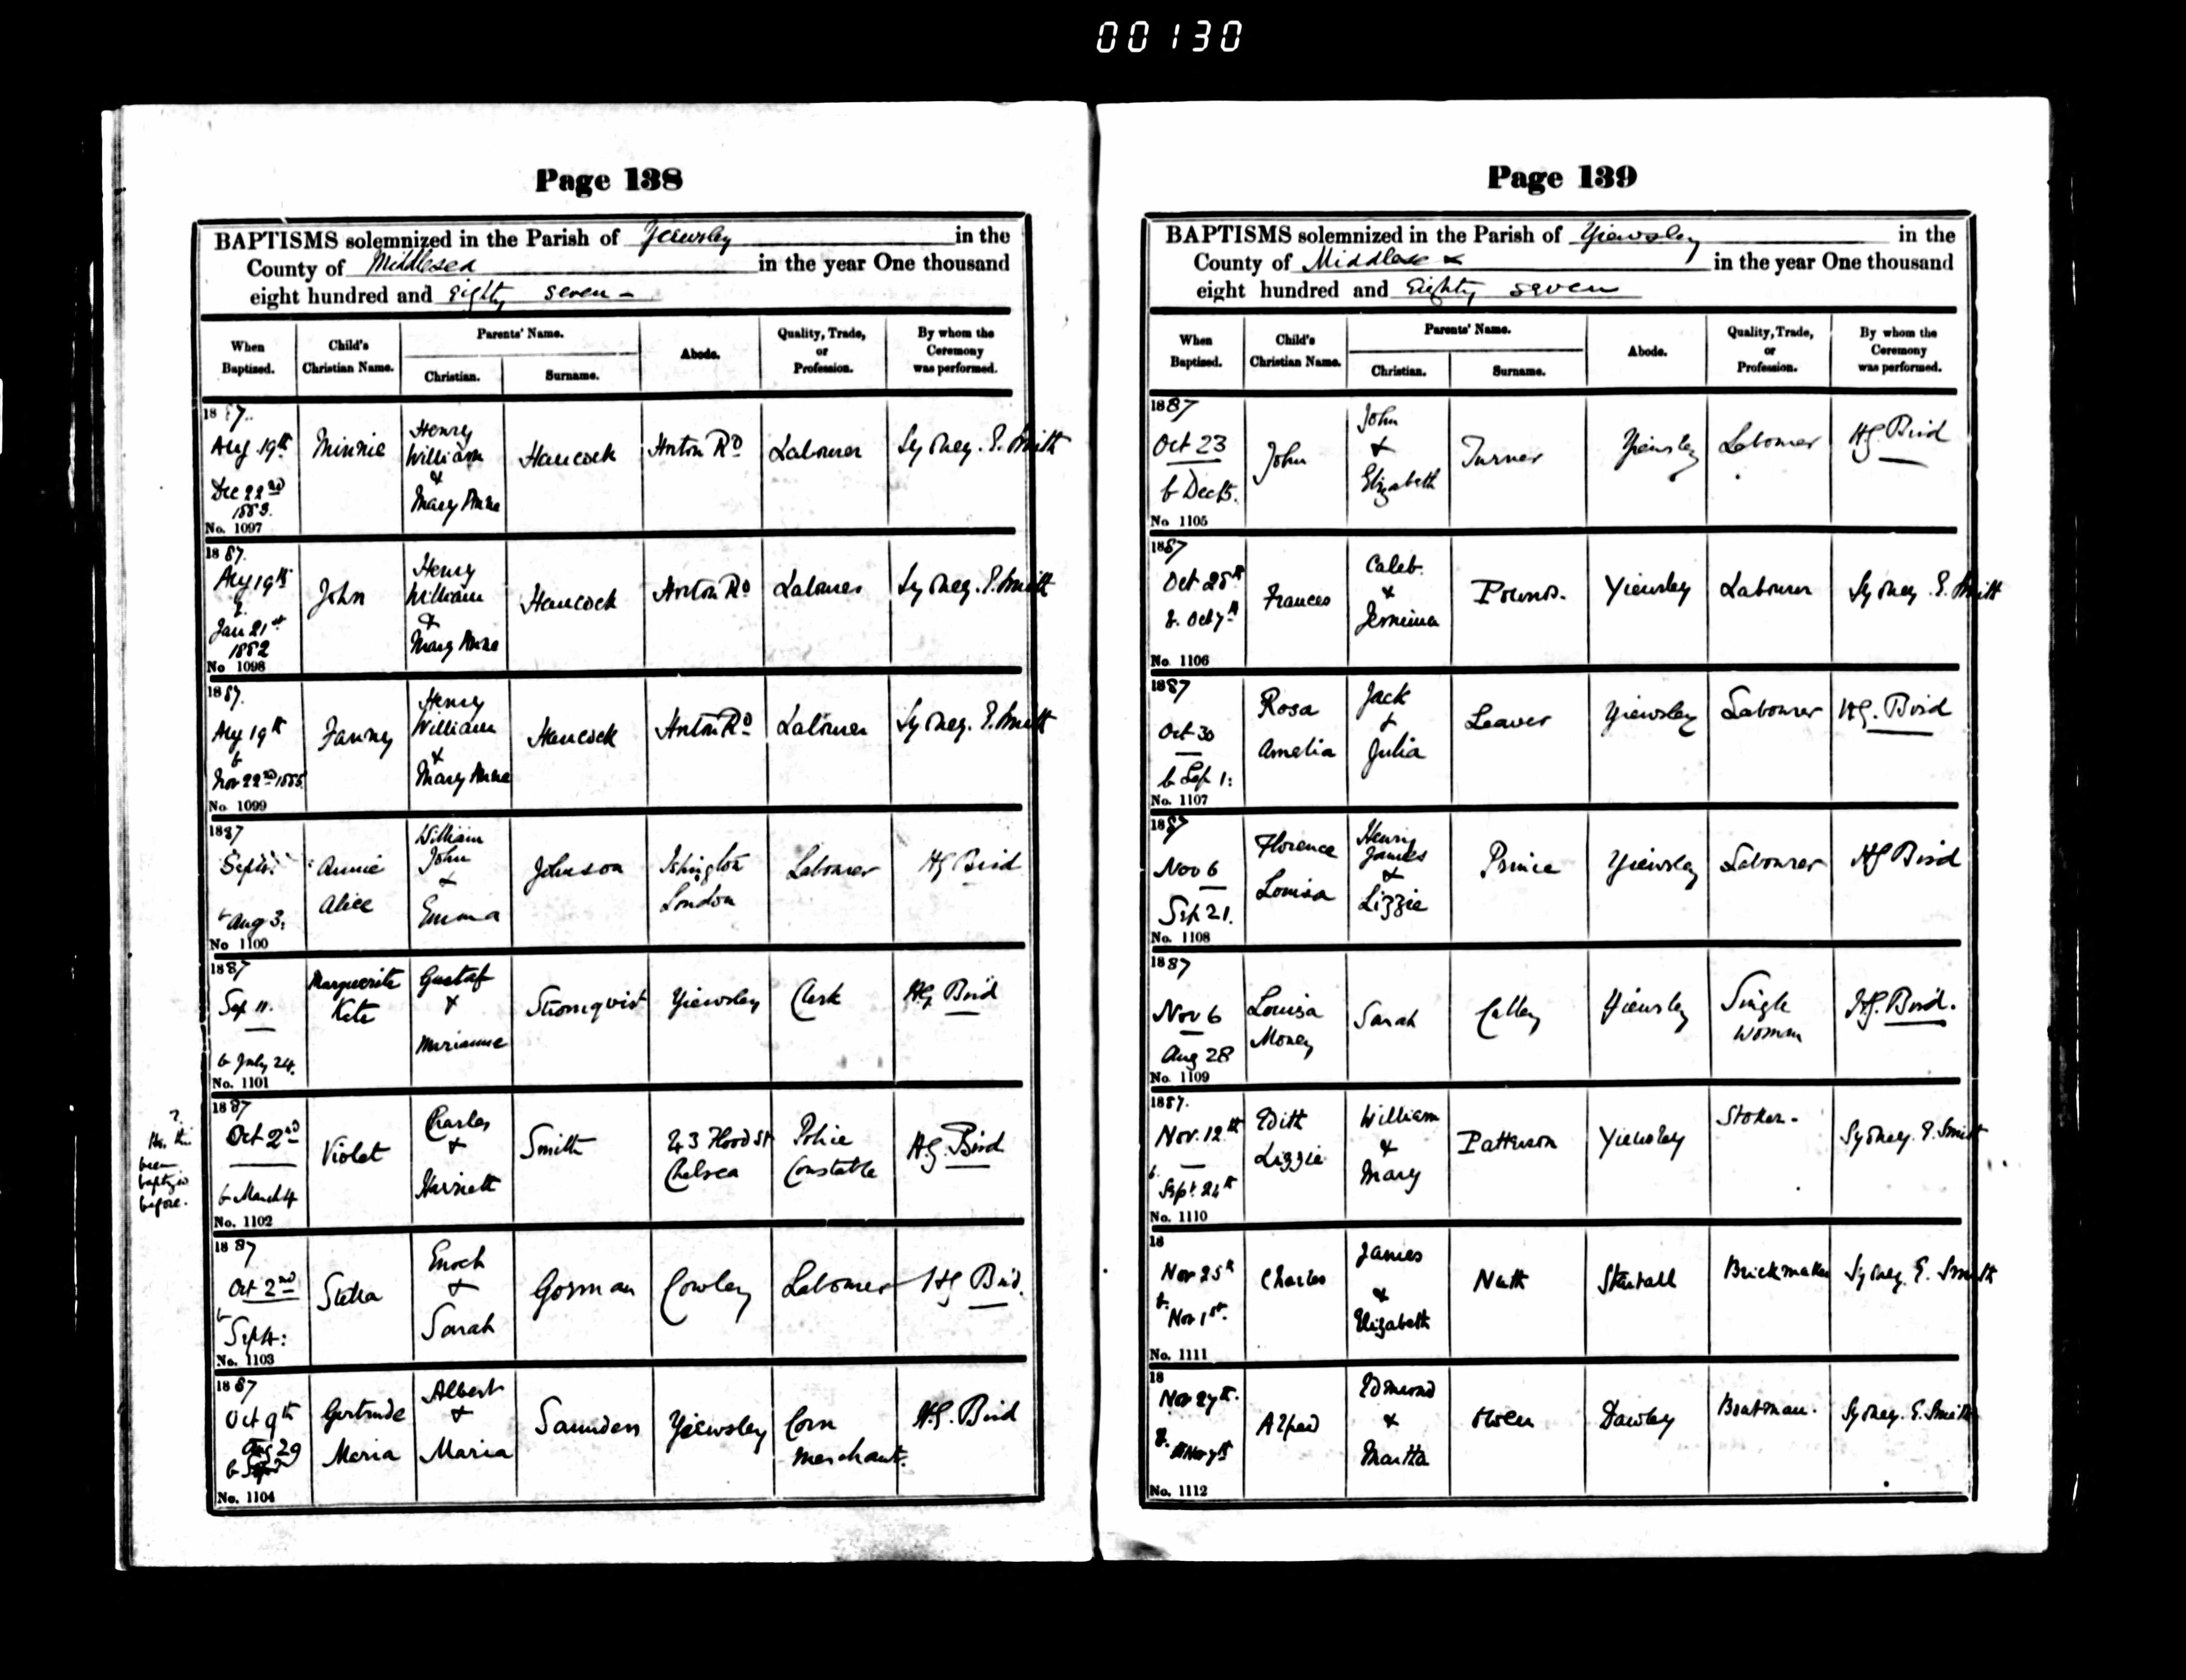 00130
Page 138
BAPTISMS solemnized in the Parish of Yiewsley in the
County of Middlesex in the year One thousand
eight hundred and eighty seven -
When Baptized. Child's Christian Name. Parents' Name. Christian. Surname. Abode. Quality, Trade, or Profession. By whom the Ceremony was performed.
1887.
Aug 19th
Dec 22nd
1883.
No. 1097
Minnie
Henry
William
&
Mary Anne
Hancock
Horton Rd
Labourer
Sydney. E. Smith
1887.
Aug 19th
b.
Jan 21st
1882
No 1098
John
Henry
William
&
Mary Anne
Hancock
Horton Rd
Labourer
Sydney. E. Smith
1887.
Aug 19th
b
Nov 22nd 1885.
No. 1099
Fanny
Henry
William
&
Mary Anne
Hancock
Horton Rd
Labourer
Sydney. E. Smith
1887
Sept
b Aug 3.
No 1100
Annie
Alice
William
John
&
Emma
Johnson
Islington
London
Labourer
HG Bird
1887
Sep 11.
b July 24.
No. 1101
Marguerite
Kate
Gustaf
&
Marianne
Stromqvist
Yiewsley
Clerk
HG Bird
?
Has this
been
baptized
before.
1887
Oct 2nd
b March 4
No. 1102
Violet
Charles
&
Harriett
Smith
43 Flood St
Chelsea
Police
Constable
H.G. Bird
1887
Oct 2nd
b
Sep 4:
No. 1103
Stella
Enoch
&
Sarah
Gorman
Cowley
Labourer
HG Bird.
1887
Oct 9th
Aug 29
b
No. 1104
Gertrude
Maria
Albert
&
Maria
Saunders
Yiewsley
Corn
Merchant.
H.G. Bird
Page 139
BAPTISMS solemnized in the Parish of Yiewsley in the
County of Middlesex in the year One thousand
eight hundred and Eighty seven
When Baptized. Child's Christian Name. Parents' Name. Christian. Surname. Abode. Quality, Trade, or Profession. By whom the Ceremony was performed.
1887
Oct 23
b Dec
No 1105
John
John
&
Elizabeth
Turner
Yiewsley
Labourer
HG Bird
1887
Oct 28th
b. Oct 7th
No. 1106
Frances
Caleb.
&
Jemima
Pounds.
Yiewsley
Labourer
Sydney. E. Smith
1887
Oct 30
b Sep 1:
No. 1107
Rosa
Amelia
Jack
&
Julia
Leaver
Yiewsley
Labourer
HG. Bird
1887
Nov 6
Sep 21.
No. 1108
Florence
Louisa
Henry
James
&
Lizzie
Prince
Yiewsley
Labourer
HG Bird
1887
Nov 6
Aug 28
No. 1109
Louisa
Money
Sarah
Calley
Yiewsley
Single
Woman
H.G. Bird.
1887.
Nov. 12th
b.
Sept. 24th
No. 1110
Edith
Lizzie
William
&
Mary
Patterson
Yiewsley
Stoker-
Sydney. E. Smith
18
Nov 25th
b.
Nov 1st.
No. 1111
Charles
James
&
Elizabeth
Nuth
Starball
Brickmaker
Sydney. E. Smith
18
Nov 27th.
b.
Nov 7th
No. 1112
Alfred
Edmond
&
Martha
Owen
Dawley
Boatman.
Sydney. E. Smith